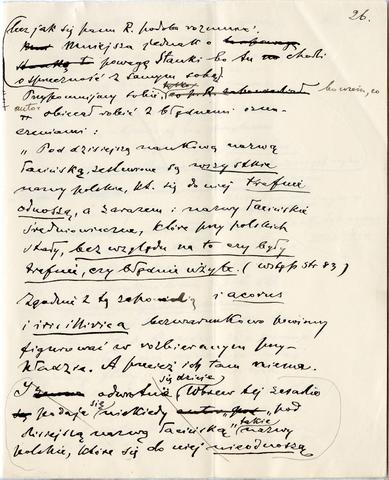 26.
Lecz jak się panu R. podoba rozumieć.
Mniejsza jednak o
powagę Słanki bo tu chodzi
o sprzeczność z samym sobą.
Przypomnijmy sobie, tylko bo wiem, co
autor
obiecał robić z błędnemi ozna-
czeniami:
„Pod dzisiejszą naukową nazwą
łacińską, zestawione są wszystkie
nazwy polskie, kt. się do niej trafnie
odnoszą, a zarazem i nazwy łacińskie
średniowieczne, które przy polskich
stały, bez względu na to czy były
trafnie, czy błędnie użyte. (wstęp str 83)
Zgodnie z tą zapowiedzią i acorus
i iris illirica bezwarunkowo powinny
figurować w rozbieranym przy-
kładzie. A przecież ich tam niema.
I odwrotnie się dzieje. Wbrew tej zasadzie
podaje się niekiedy „pod
dzisiejszą nazwą łacińską” takie nazwy
polskie, które się do niej nieodnoszą